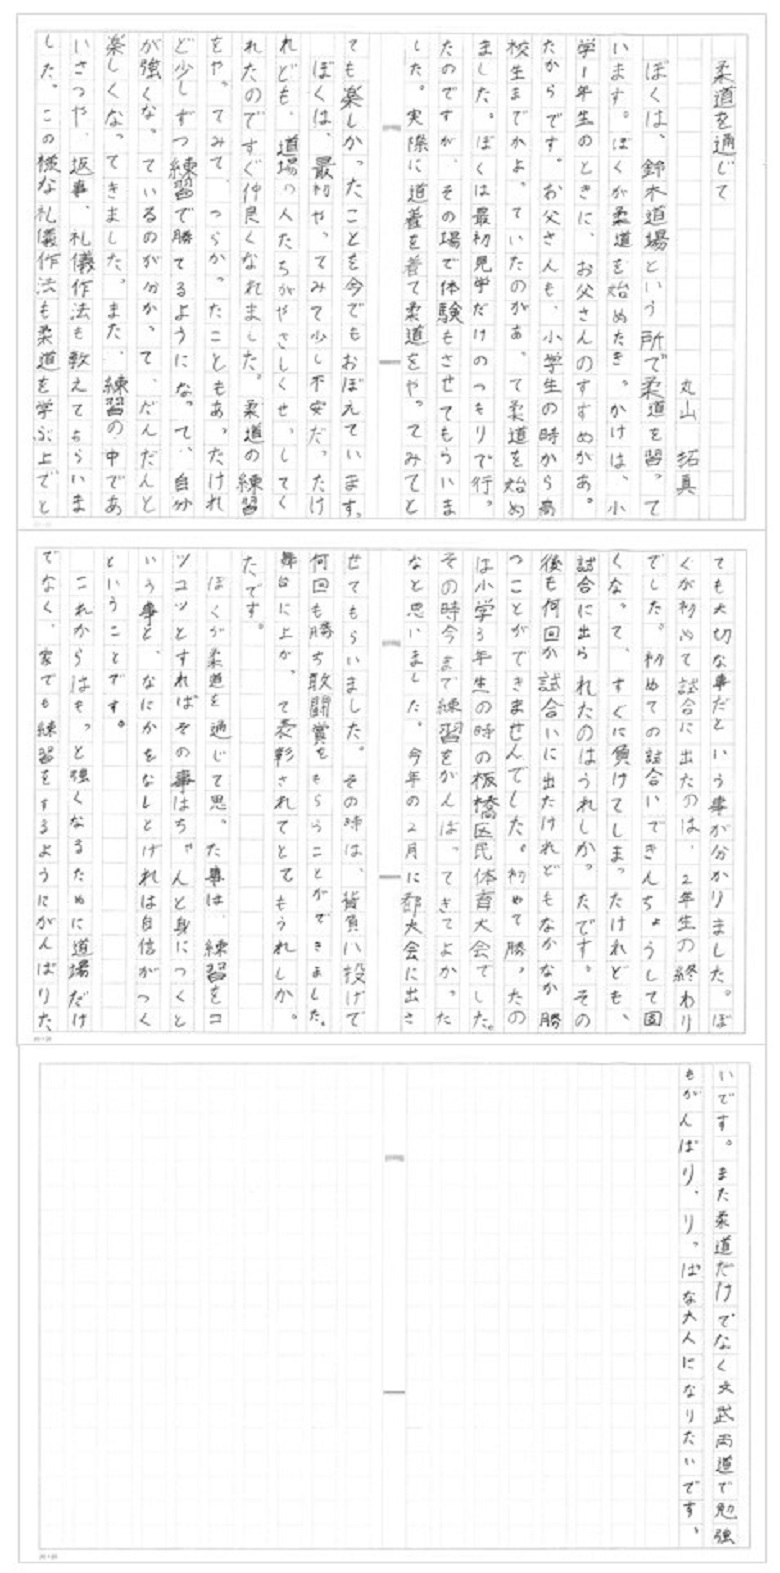 柔道を通じて
丸山 拓真
ぼくは、鈴木道場という所で柔道を習って
います。ぼくが柔道を始めたきっかけは、小
学1年生のときに、お父さんのすすめがあっ
たからです。お父さんも、小学生の時から高
校生までかよっていたのがあって柔道を始め
ました。ぼくは最初見学だけのつもりで行っ
たのですが、その場で体験もさせてもらいま
した。実際に道着を着て柔道をやってみてと
ても楽しかったことを今でもおぼえています。
ぼくは、最初やってみて少し不安だったけ
れども、道場の人たちがやさしくせっしてく
れたのですぐ仲良くなれました。柔道の練習
をやってみて、つらかったこともあったけれ
ど少しずつ練習で勝てるようになって、自分
が強くなっているのが分かって、だんだんと
楽しくなってきました。また、練習の中であ
いさつや、返事、礼儀作法も教えてもらいま
した。この様な礼儀作法も柔道を学ぶ上でと
ても大切な事だという事が分かりました。ぼ
くが初めて試合に出たのは、2年生の終わり
でした。初めての試合いできんちょうして固
くなって、すぐに負けてしまったけれども、
試合に出られたのはうれしかったです。その
後も何回か試合いに出たけれどもなかなか勝
つことができませんでした。初めて勝ったの
は小学3年生の時の板橋区民体育大会でした。
その時今まで練習をがんばってきてよかった
なと思いました。今年の2月に都大会に出さ
せてもらいました。その時は、背負い投げで
何回も勝ち敢闘賞をもらうことができました。
舞台に上がって表彰されてとてもうれしかっ
たです。
ぼくが柔道を通じて思った事は、練習をコ
ツコツとすればその事はちゃんと身につくと
いう事と、なにかをなしとげれば自信がつく
ということです。
これからはもっと強くなるために道場だけ
でなく、家でも練習をするようにがんばりた
いです。また柔道だけでなく文武両道で勉強
もがんばり、りっぱな大人になりたいです。